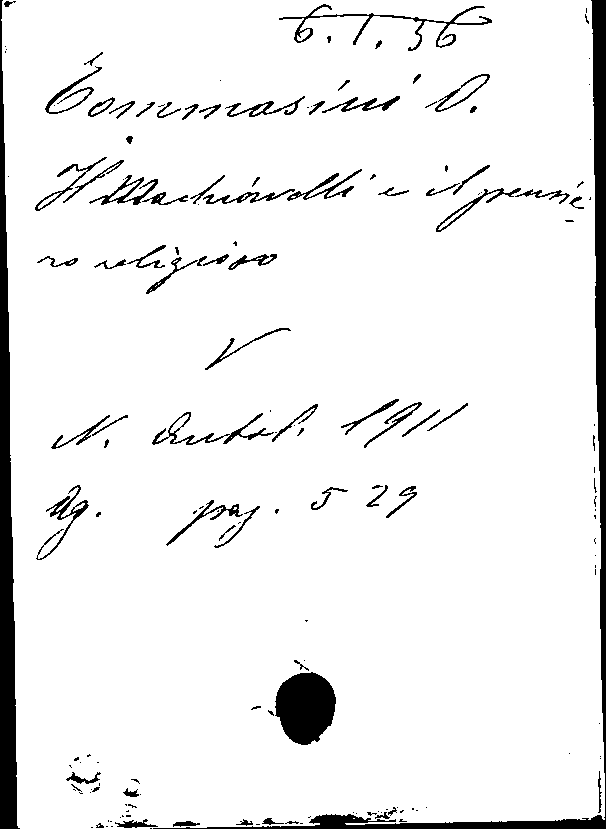 6.1.36
Tommasini O.
Il Machiavelli e il pensie-
ro religioso
V
N. Antol. 1911
Ag. pag. 529